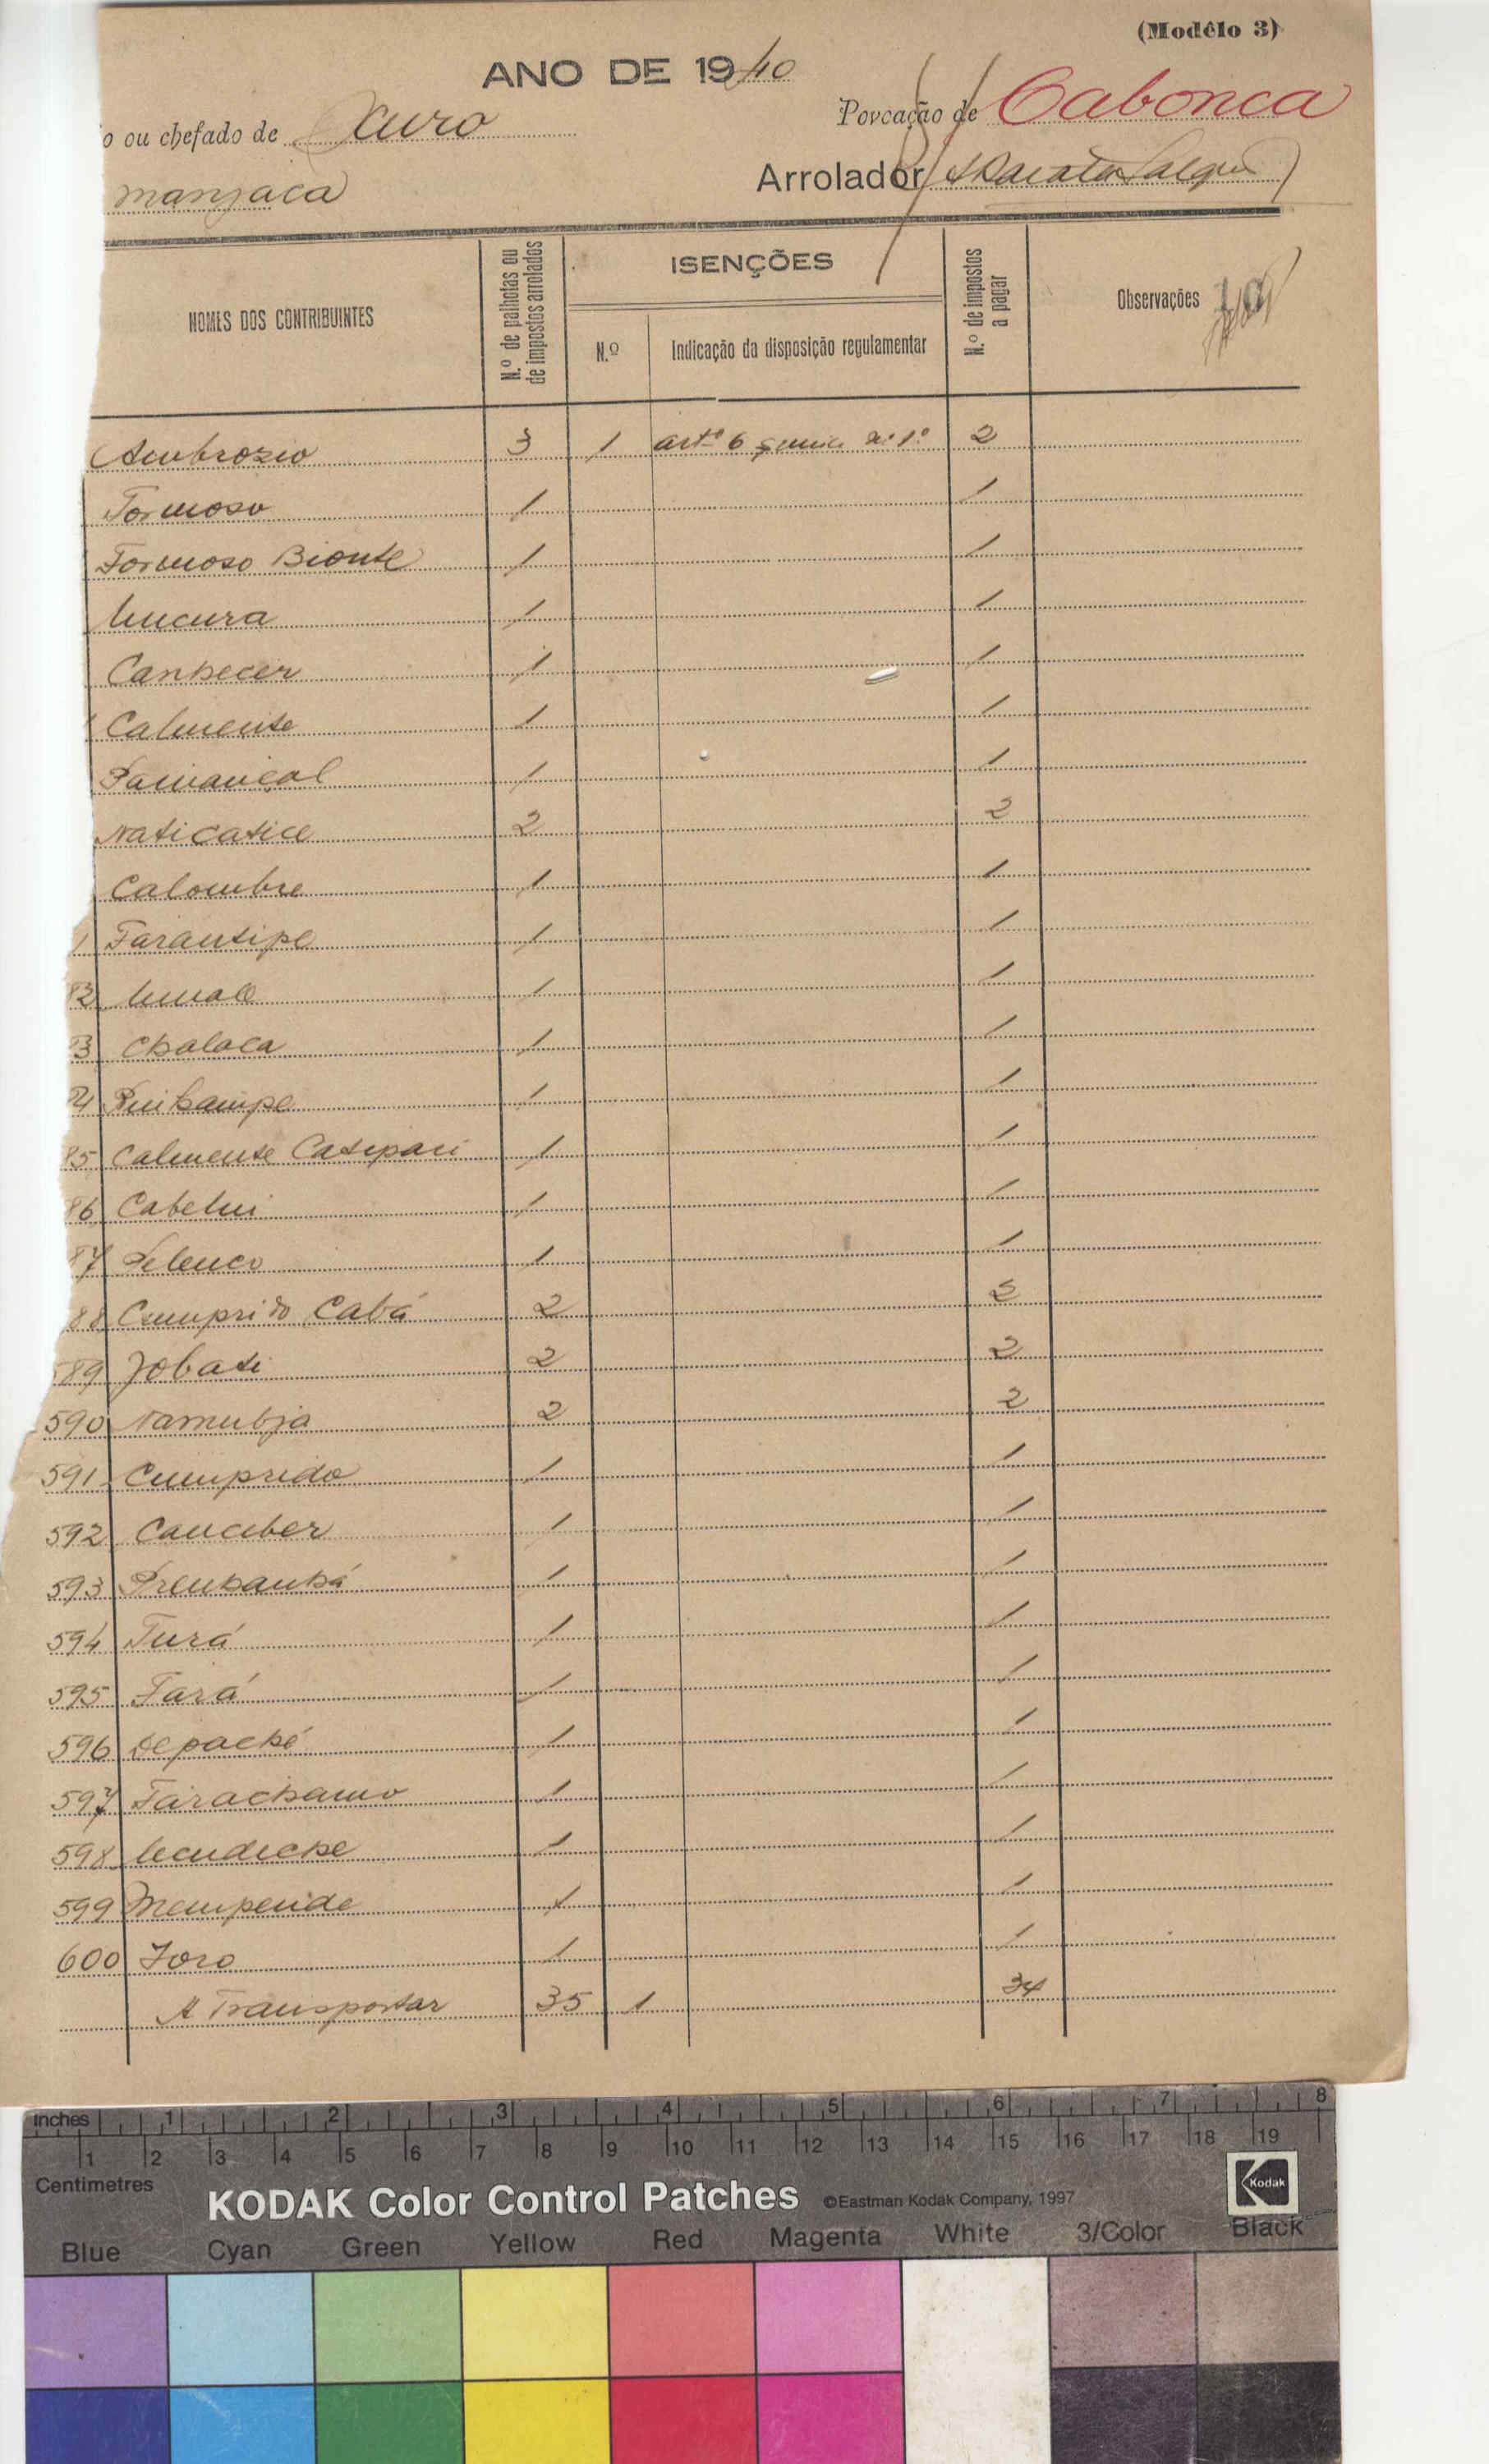 (Modêlo 3)
ANO DE 1940
o ou chefado de Xuro
Povoação de Cabonca
manjaca
Arrolador
NOMES DOS CONTRIBUINTES
N.º de palhotas ou de impostos arrolados
ISENÇÕES
N.º
Indicação da disposição regulamentar
N.º de impostos a pagar
Observações
Ambrozio 3 1 artº 6 § unico nº 1º 2
Formoso 1 1
Formoso Bionte 1 1
Uncura 1 1
Canhecer 1 1
Calmente 1 1
1 1
Naticatice 2 2
Calombre 1 1
1 Farantipe 1 1
82 1 1
83 Chalaca 1 1
84 1 1
85 Calmente Catipari 1 1
86 Cabelui 1 1
87 1 1
88 Cumprido Cabá 2 2
589 Jobati 2 2
590 Namubja 2 2
591 Cumprido 1 1
592 Cauciber 1 1
593 1 1
594 Turá 1 1
595 Fará 1 1
596 Depaché 1 1
597 Farachamo 1 1
598 1 1
599 Mempende 1 1
600 Joro 1 1
A Transportar 35 1 34
inches 1 2 3 4 5 6 7 8
1 2 3 4 5 6 7 8 9 10 11 12 13 14 15 16 17 18 19
Centimetres
KODAK Color Control Patches ©Eastman Kodak Company, 1997 Kodak
Blue Cyan Green Yellow Red Magenta White 3/Color Black